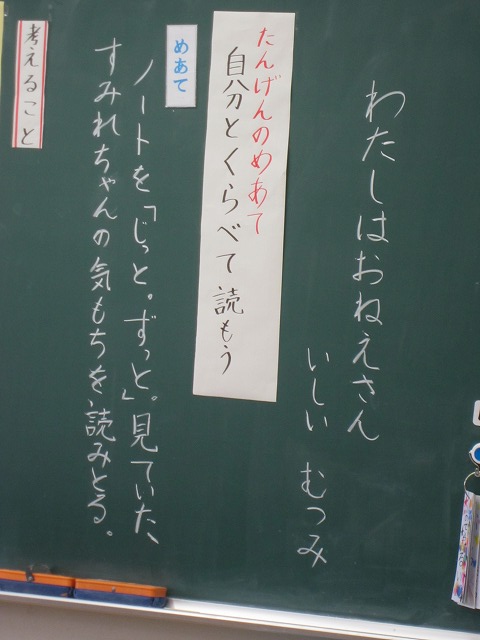 わたしはおねえさん
いしい むつみ
たんげんのめあて
自分とくらべて読もう
めあて
ノートを「じっと。ずっと」。見ていた、
すみれちゃんの気もちを、読みとる。
考えること